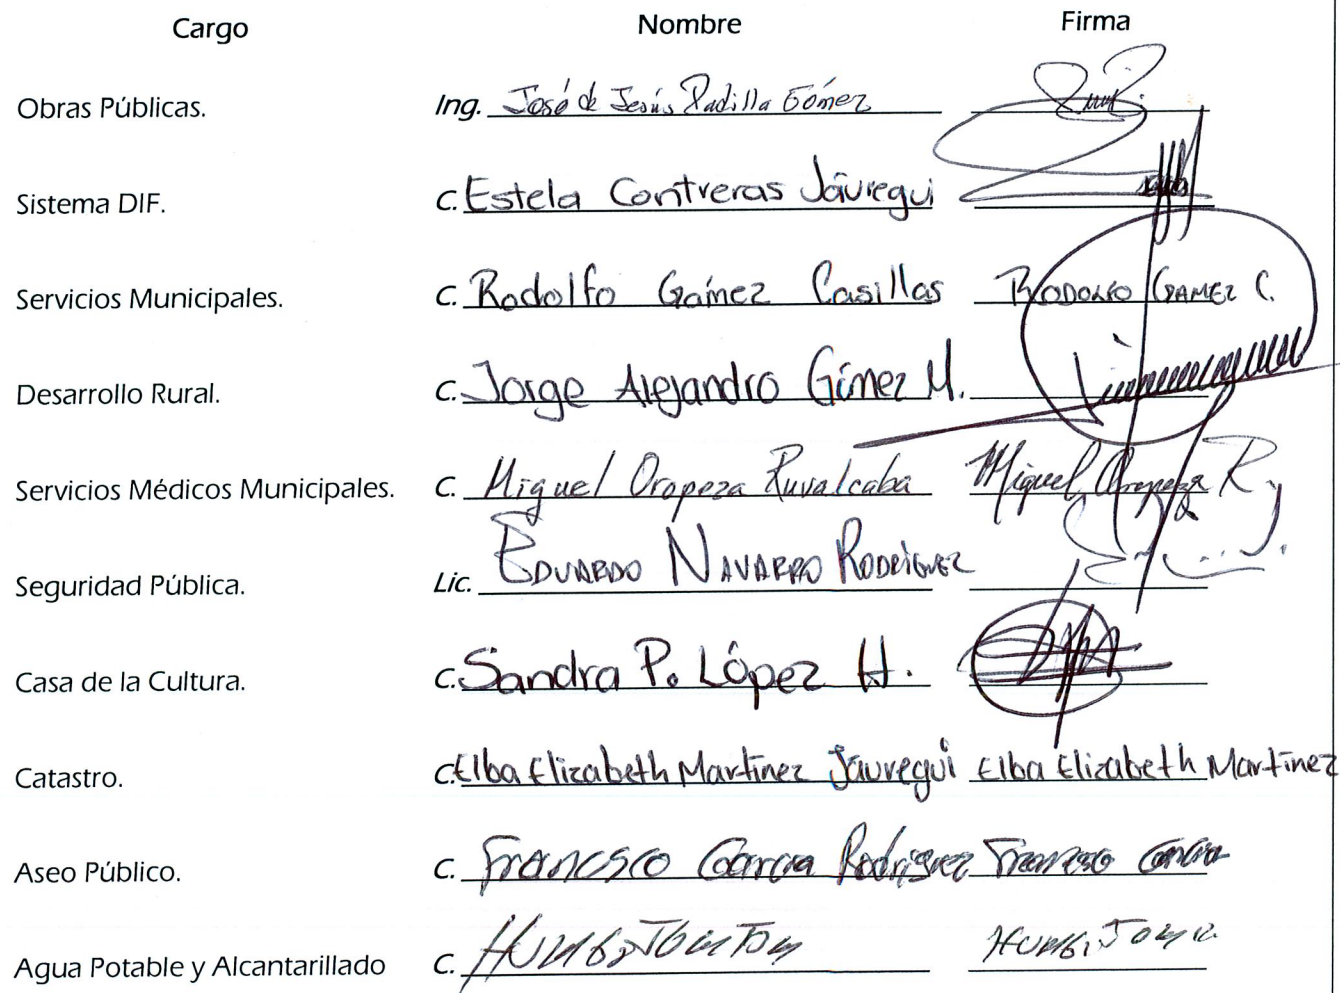 Cargo Nombre Firma
Obras Públicas. Ing. José de Jesús Padilla Gómez
Sistema DIF. C. Estela Contreras Jáuregui
Servicios Municipales. C. Rodolfo Gámez Casillas RODOLFO GAMEZ C.
Desarrollo Rural. C. Jorge Alejandro Gómez M.
Servicios Médicos Municipales. C. Miguel Oropeza Ruvalcaba Miguel Oropeza R
Seguridad Pública. Lic. EDUARDO NAVARRO RODRÍGUEZ
Casa de la Cultura. C. Sandra P. López H.
Catastro. C. Elba Elizabeth Martínez Jáuregui Elba Elizabeth Martínez
Aseo Público. C. Francisco Garcia Rodriguez Francisco Garcia
Agua Potable y Alcantarillado C.